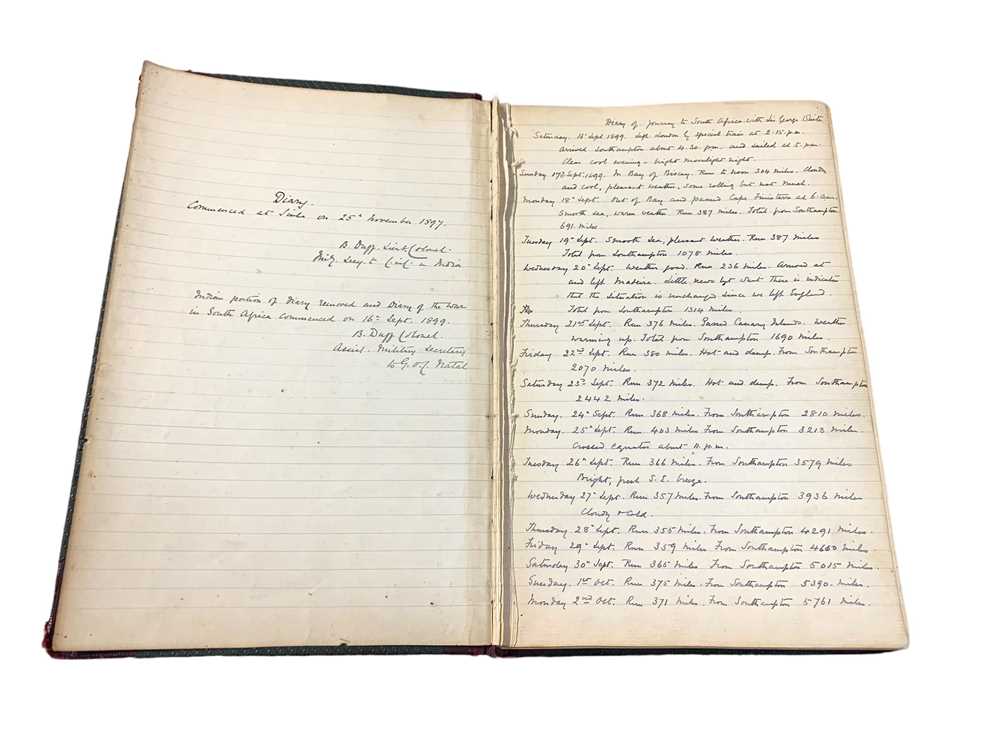 Diary.
Commenced at Simla on 25th November 1897.
B. Duff. Lieut Colonel.
Mily. Secy. to C. in C. in India
Indian portion of Diary removed and Diary of the War
in South Africa commenced on 16th Sept. 1899.
B. Duff Colonel.
Assist. Military Secretary
to G.O.C. Natal
Diary of journey to South Africa with Sir George White
Saturday. 16th Sept 1899. Left London by special train at 2.15 p.m.
arrived Southampton about 4.30. p.m. and sailed at 5. p.m.
Clear cool evening - bright moonlight night.
Sunday 17th Sept. 1899. In Bay of Biscay. Run to noon 304 miles. Cloudy
and cool, pleasant weather, some rolling but not much.
Monday 18th Sept. Out of Bay and passed Cape Finisterre at 6. a.m.
Smooth sea, warm weather. Run 387 miles. Total from Southampton
691 miles.
Tuesday 19th Sept. Smooth Sea, pleasant weather. Run 387 miles
Total from Southampton 1078 miles.
Wednesday 20th Sept. Weather good. Run 236 miles. Arrived at
and left Madeira. Little news but what there is indicates
that the situation is unchanged since we left England.
Total from Southampton 1314 miles.
Thursday 21st Sept. Run 376 miles. Passed Canary Islands. Weather
warming up. Total from Southampton 1690 miles.
Friday 22nd Sept. Run 380 miles. Hot and damp. From Southampton
2070 miles.
Saturday 23rd Sept. Run 372 miles. Hot and damp. From Southampton
2442 miles.
Sunday. 24th Sept. Run 368 miles. From Southampton 2810 miles.
Monday. 25th Sept. Run 403 miles. From Southampton 3213 miles.
Crossed equator about 11. p.m.
Tuesday 26th Sept. Run 366 miles. From Southampton 3579 miles
Bright, fresh S.E. breeze.
Wednesday 27th Sept. Run 357 miles. From Southampton 3936 miles
Cloudy & Cold.
Thursday 28th Sept. Run 355 miles. From Southampton 4291 miles.
Friday 29th Sept. Run 359 miles. From Southampton 4650 miles.
Saturday 30th Sept. Run 365 miles. From Southampton 5015 miles.
Sunday. 1st Oct. Run 375 miles. From Southampton 5390 miles.
Monday 2nd Oct. Run 371 miles. From Southampton 5761 miles.